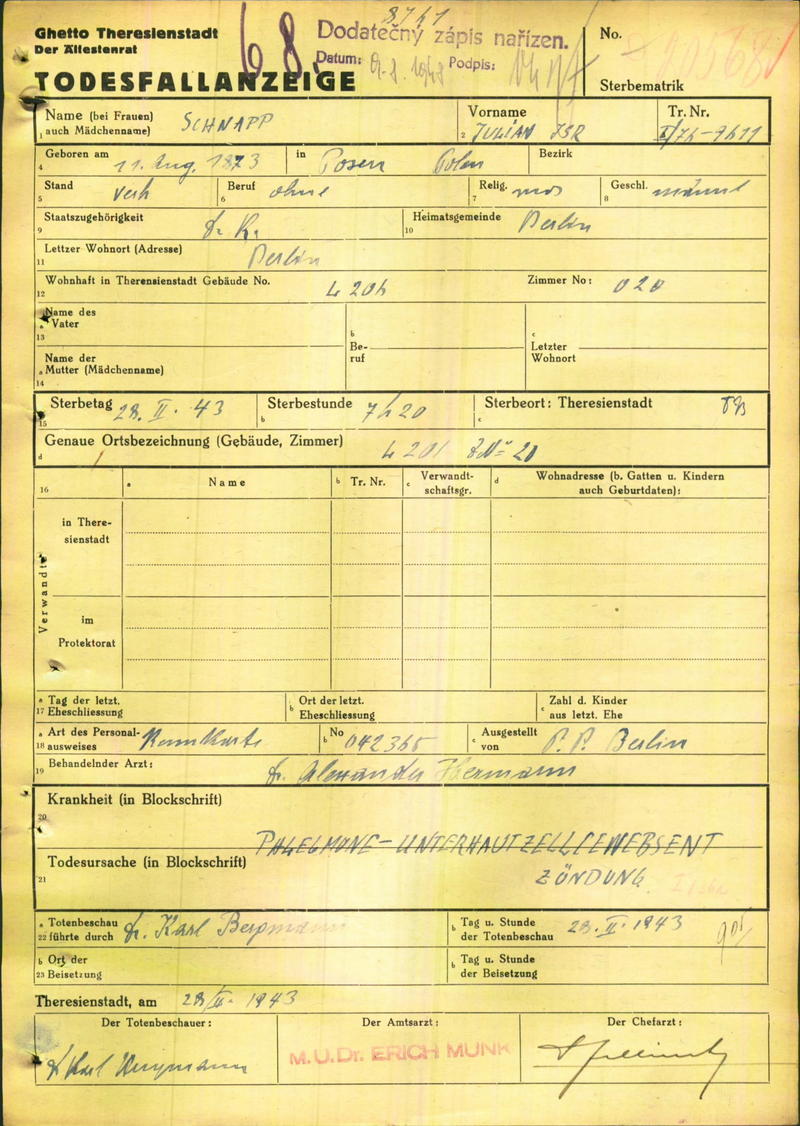 8741
68.
Ghetto Theresienstadt
Der Ältestenrat
TODESFALLANZEIGE
Dodatečný zápis nařízen.
Datum: Podpis:
No.
Sterbematrik
Name (bei Frauen) SCHNAPP
1 auch Mädchenname)
Vorname
2 JULIAN ISR
Tr. Nr.
I/74-9411
Geboren am
4 11. Aug. 1873
in Posen Polen
Bezirk
Stand
5 verh
Beruf ohne
6
Relig. mos
7
Geschl. männl
8
Staatszugehörigkeit
9 D. R.
Heimatsgemeinde Berlin
10
Lettzer Wohnort (Adresse)
11 Berlin
Wohnhaft in Therensienstadt Gebäude No.
12 L 204
Zimmer No: 020
Name des
a Vater
13
b
Be-
ruf
c
Letzter
Wohnort
Name der
a Mutter (Mädchenname)
14
Sterbetag 28. II. 43
15
Sterbestunde 7h20
b
Sterbeort: Theresienstadt
c
Genaue Ortsbezeichnung (Gebäude, Zimmer)
d L 201 ZNr 20
16
a Name
b Tr. Nr.
c Verwandt-
schaftsgr.
d Wohnadresse (b. Gatten u. Kindern
auch Geburtdaten):
Verwandte
in There-
sienstadt
im
Protektorat
a Tag der letzt.
17 Eheschliessung
b Ort der letzt.
Eheschliessung
c Zahl d. Kinder
aus letzt. Ehe
a Art des Personal-
18 ausweises Kennkarte
b No 042365
c Ausgestellt
von P. P. Berlin
Behandelnder Arzt:
19 Dr. Alexander Hermann
Krankheit (in Blockschrift)
20
PHLEGMONE - UNTERHAUTZELLGEWEBSENT
Todesursache (in Blockschrift)
21 ZÜNDUNG
a Totenbeschau
22 führte durch Dr. Karl Bergmann
b Tag u. Stunde
der Totenbeschau 28. II. 1943
b Ort der
23 Beisetzung
b Tag u. Stunde
der Beisetzung
Theresienstadt, am 28/II. 1943
Der Totenbeschauer:
Der Amtsarzt:
Der Chefarzt:
Dr Karl Bergmann
M.U.Dr. ERICH MUNK